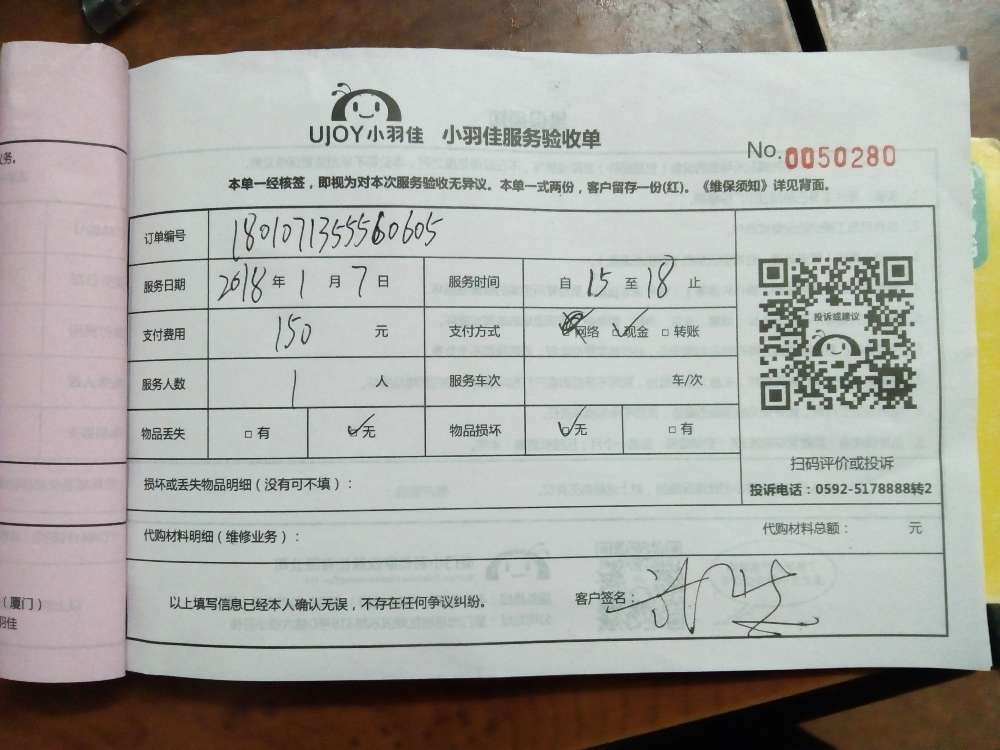 UJOY小羽佳 小羽佳服务验收单
No.0050280
本单一经核签，即视为对本次服务验收无异议。本单一式两份，客户留存一份(红)。《维保须知》详见背面。
订单编号 180107135556​0605
服务日期 2018年1月7日 服务时间 自15至18止
支付费用 150元 支付方式 网络 现金 转账
服务人数 1人 服务车次 车/次
物品丢失 有 无 物品损坏 无 有
投诉或建议
扫码评价或投诉
投诉电话：0592-5178888转2
损坏或丢失物品明细（没有可不填）：
代购材料明细（维修业务）： 代购材料总额： 元
以上填写信息已经本人确认无误，不存在任何争议纠纷。 客户签名：
务。
（厦门）
羽佳